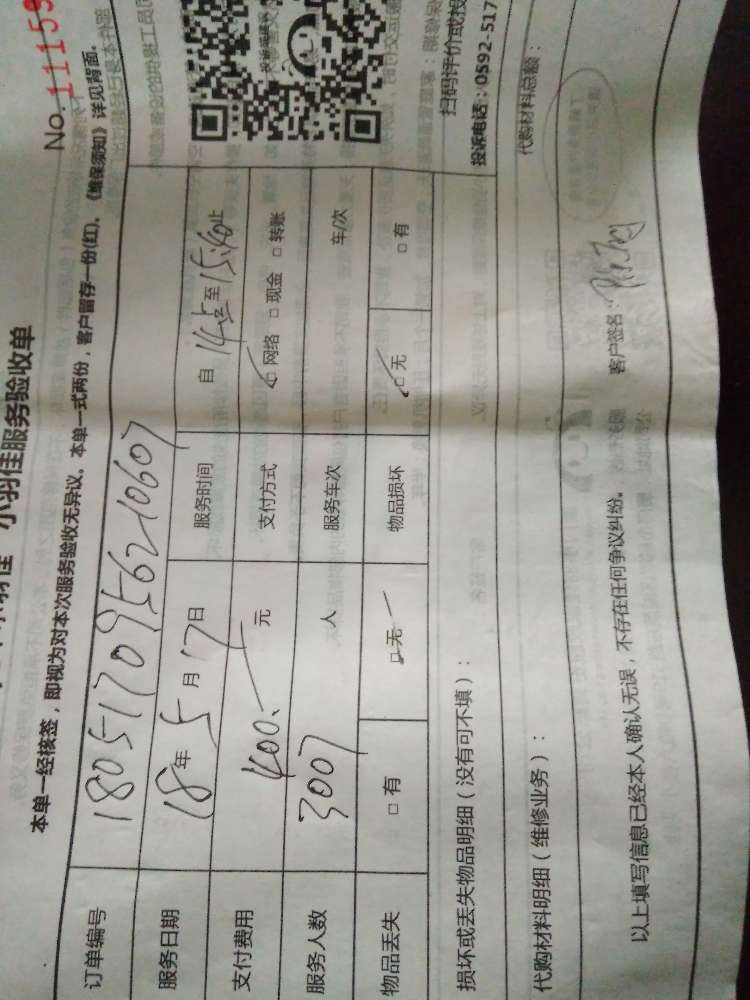 小羽佳服务验收单
No. 11159
本单一经核签，即视为对本次服务验收无异议。本单一式两份，客户留存一份(红)。《维保须知》详见背面。
订单编号 1805170956210607
服务日期 18年5月17日 服务时间 自14:至15:40止
支付费用 400.元 支付方式 ☑网络 □现金 □转账
服务人数 3007 人 服务车次 车/次
物品丢失 □有 ☑无 物品损坏 ☑无 □有
扫码评价或投
投诉电话：0592-517
损坏或丢失物品明细（没有可不填）：
代购材料明细（维修业务）： 代购材料总额：
以上填写信息已经本人确认无误，不存在任何争议纠纷。 客户签名：